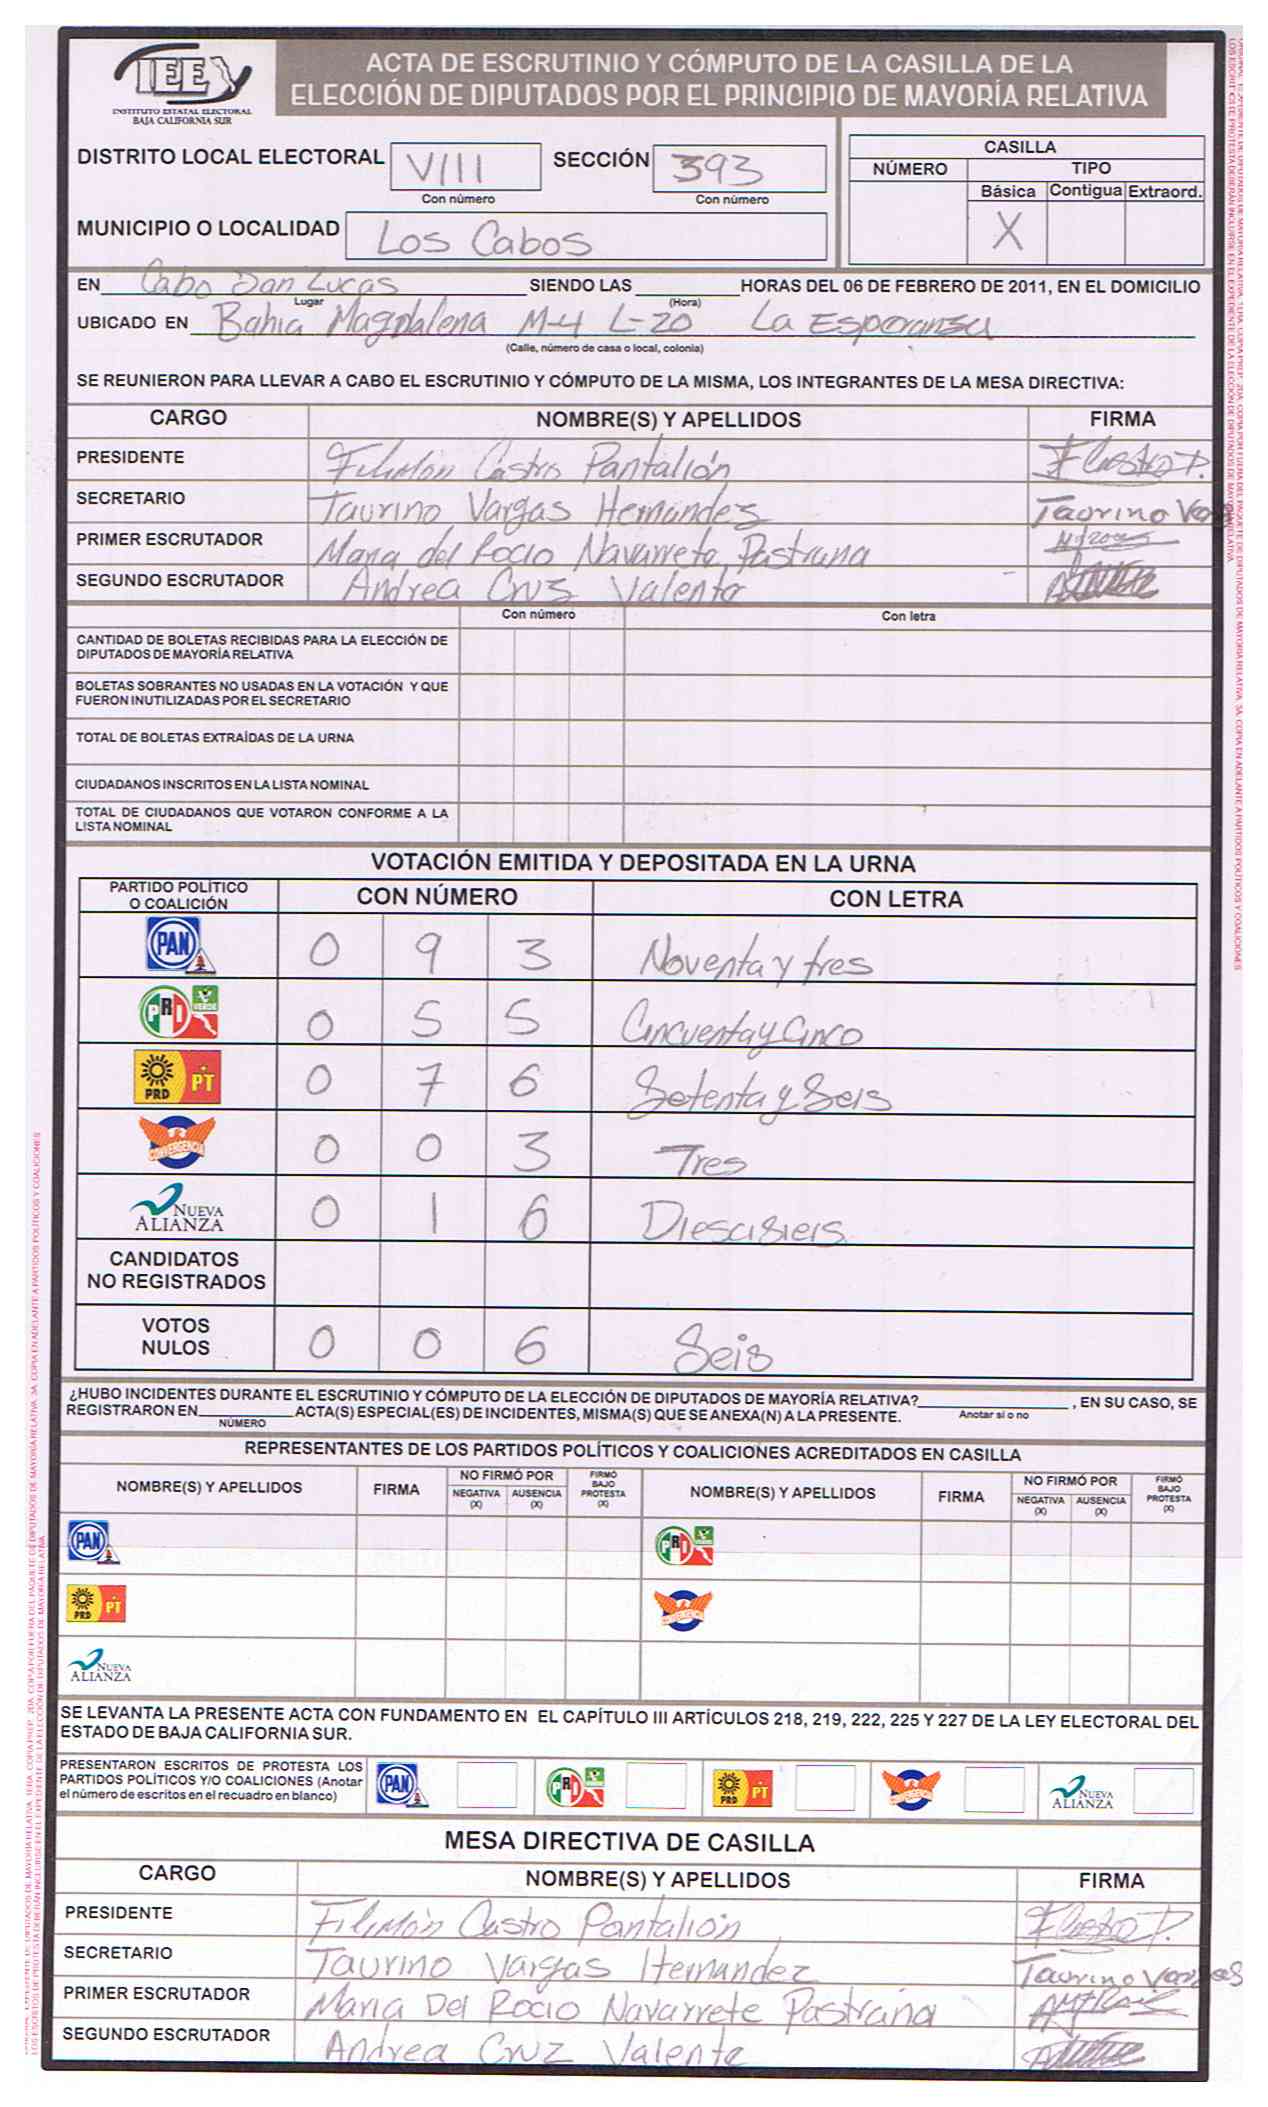 IEE
INSTITUTO ESTATAL ELECTORAL
BAJA CALIFORNIA SUR
ACTA DE ESCRUTINIO Y CÓMPUTO DE LA CASILLA DE LA
ELECCIÓN DE DIPUTADOS POR EL PRINCIPIO DE MAYORÍA RELATIVA
DISTRITO LOCAL ELECTORAL VIII SECCIÓN 393
Con número Con número
MUNICIPIO O LOCALIDAD Los Cabos
CASILLA
NÚMERO TIPO
Básica Contigua Extraord.
X
EN Cabo San Lucas SIENDO LAS HORAS DEL 06 DE FEBRERO DE 2011, EN EL DOMICILIO
Lugar (Hora)
UBICADO EN Bahia Magdalena M-4 L-20 La Esperansa
(Calle, número de casa o local, colonia)
SE REUNIERON PARA LLEVAR A CABO EL ESCRUTINIO Y CÓMPUTO DE LA MISMA, LOS INTEGRANTES DE LA MESA DIRECTIVA:
CARGO NOMBRE(S) Y APELLIDOS FIRMA
PRESIDENTE Filimón Castro Pantalión F Castro P.
SECRETARIO Taurino Vargas Hernandez Taurino
PRIMER ESCRUTADOR Maria del Rocio Navarrete Pastrana
SEGUNDO ESCRUTADOR Andrea Cruz Valente
Con número Con letra
CANTIDAD DE BOLETAS RECIBIDAS PARA LA ELECCIÓN DE
DIPUTADOS DE MAYORÍA RELATIVA
BOLETAS SOBRANTES NO USADAS EN LA VOTACIÓN Y QUE
FUERON INUTILIZADAS POR EL SECRETARIO
TOTAL DE BOLETAS EXTRAÍDAS DE LA URNA
CIUDADANOS INSCRITOS EN LA LISTA NOMINAL
TOTAL DE CIUDADANOS QUE VOTARON CONFORME A LA
LISTA NOMINAL
VOTACIÓN EMITIDA Y DEPOSITADA EN LA URNA
PARTIDO POLÍTICO
O COALICIÓN CON NÚMERO CON LETRA
PAN 0 9 3 Noventa y tres
PRI VERDE 0 5 5 Cincuenta y Cinco
PRD PT 0 7 6 Setenta y Seis
CONVERGENCIA 0 0 3 Tres
NUEVA ALIANZA 0 1 6 Diesciseis
CANDIDATOS
NO REGISTRADOS
VOTOS
NULOS 0 0 6 Seis
¿HUBO INCIDENTES DURANTE EL ESCRUTINIO Y CÓMPUTO DE LA ELECCIÓN DE DIPUTADOS DE MAYORÍA RELATIVA? , EN SU CASO, SE
REGISTRARON EN ACTA(S) ESPECIAL(ES) DE INCIDENTES, MISMA(S) QUE SE ANEXA(N) A LA PRESENTE. Anotar si o no
NÚMERO
REPRESENTANTES DE LOS PARTIDOS POLÍTICOS Y COALICIONES ACREDITADOS EN CASILLA
NOMBRE(S) Y APELLIDOS FIRMA NO FIRMÓ POR NEGATIVA (X) AUSENCIA (X) FIRMÓ BAJO PROTESTA (X) NOMBRE(S) Y APELLIDOS FIRMA NO FIRMÓ POR NEGATIVA (X) AUSENCIA (X) FIRMÓ BAJO PROTESTA (X)
PAN PRI
PRD PT CONVERGENCIA
NUEVA ALIANZA
SE LEVANTA LA PRESENTE ACTA CON FUNDAMENTO EN EL CAPÍTULO III ARTÍCULOS 218, 219, 222, 225 Y 227 DE LA LEY ELECTORAL DEL
ESTADO DE BAJA CALIFORNIA SUR.
PRESENTARON ESCRITOS DE PROTESTA LOS
PARTIDOS POLÍTICOS Y/O COALICIONES (Anotar
el número de escritos en el recuadro en blanco)
PAN PRI PRD PT CONVERGENCIA NUEVA ALIANZA
MESA DIRECTIVA DE CASILLA
CARGO NOMBRE(S) Y APELLIDOS FIRMA
PRESIDENTE Filimón Castro Pantalión F Castro P.
SECRETARIO Taurino Vargas Hernandez Taurino Vargas
PRIMER ESCRUTADOR Maria Del Rocio Navarrete Pastrana
SEGUNDO ESCRUTADOR Andrea Cruz Valente